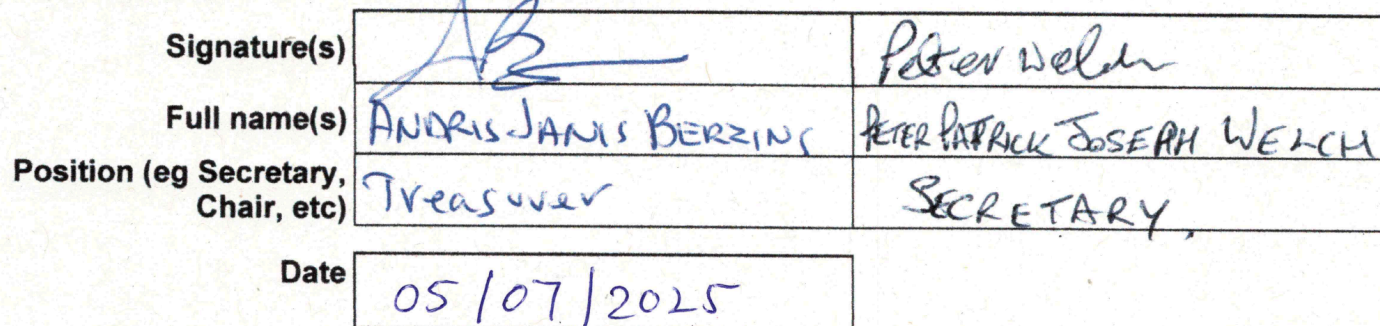 Signature(s) Peter Welch
Full name(s) ANDRIS JANIS BERZINS PETER PATRICK JOSEPH WELCH
Position (eg Secretary, Chair, etc) Treasurer SECRETARY.
Date 05/07/2025